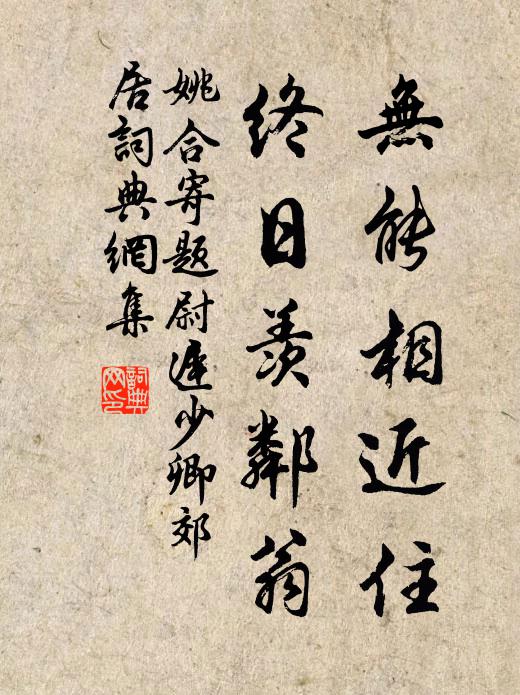 無能相近住
終日羨鄰翁
姚合寄題尉遲少卿郊
居詞典網集
詞典
网印